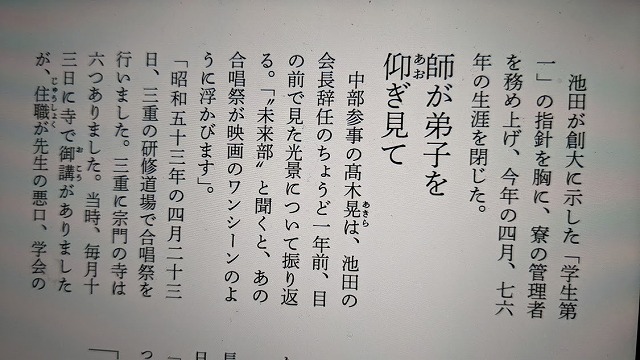 池田が創大に示した「学生第
一」の指針を胸に、寮の管理者
を務め上げ、今年の四月、七六
年の生涯を閉じた。
師が弟子を
仰ぎ見て
あお
中部参事の髙木晃は、池田の
あきら
会長辞任のちょうど一年前、目
の前で見た光景について振り返
る。「〝未来部〟と聞くと、あの
合唱祭が映画のワンシーンのよ
うに浮かびます」。
「昭和五十三年の四月二十三
日、三重の研修道場で合唱祭を
行いました。三重に宗門の寺は
六つありました。当時、毎月十
三日に寺で御講がありました
おこう
が、住職が先生の悪口、学会の
じゅうしょく